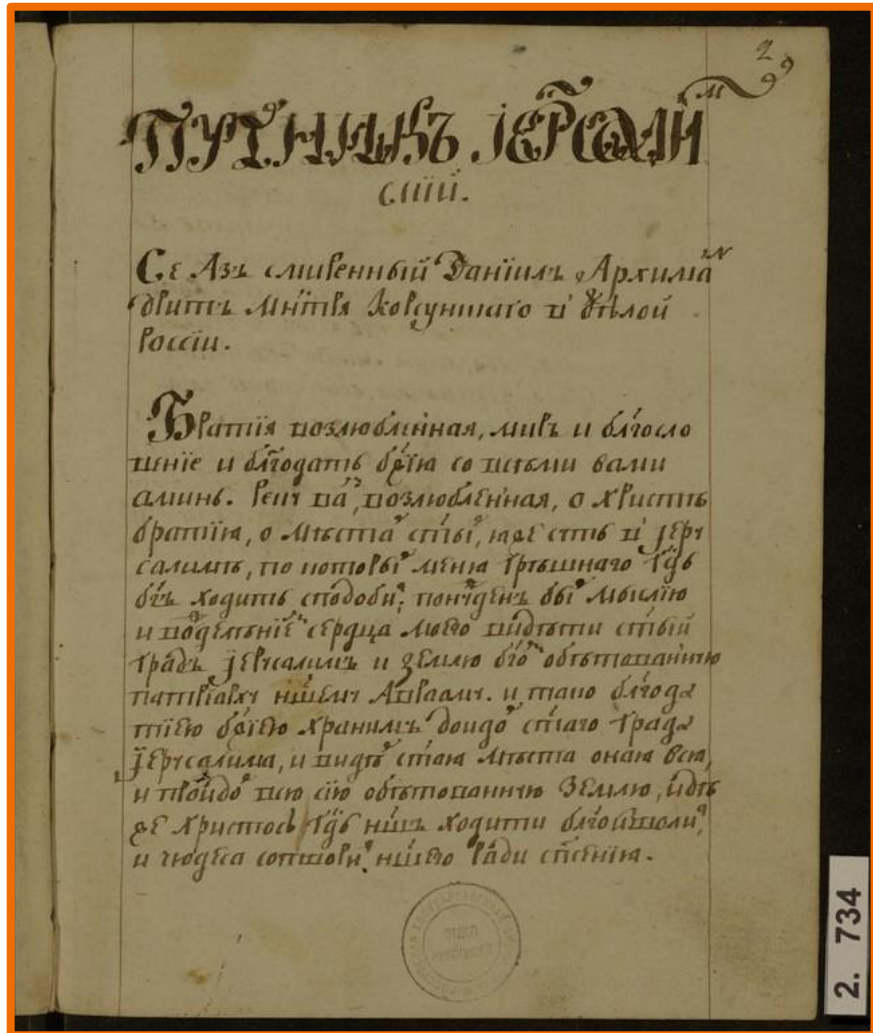 2
ПУТНИКЪ ІЕРСАЛИМ
СКІЙ.
Се Азъ смиренный Даніилъ Архима
дритъ Мнтря Корсунскаго и Бѣлой
Россіи.
Братія возлюбленная, миръ и блгосло
веніе и блгодать бжія со всѣми вами
аминь. Реку ва, возлюбленная, о Христѣ
братіия, о мѣста сты, иже єсть в Іеру
салимѣ, по которы меня грѣшнаго Гдь
бгъ ходить сподоби, понужденъ бы мыслію
и сердца моего видѣти стый
градъ Іерусалимъ и землю обѣтованную
патріарху ншему Авраому. и тако блгода
тію бжіею хранимъ доидо стаго града
Іерусалима, и видѣ стая мѣста оная вся,
и пройдо всю сію обѣтованную землю, идѣ
же Христосъ Гдь ншъ ходити блгоизволи,
и чюдеса сотвори, ншего ради спсенія.
2. 734